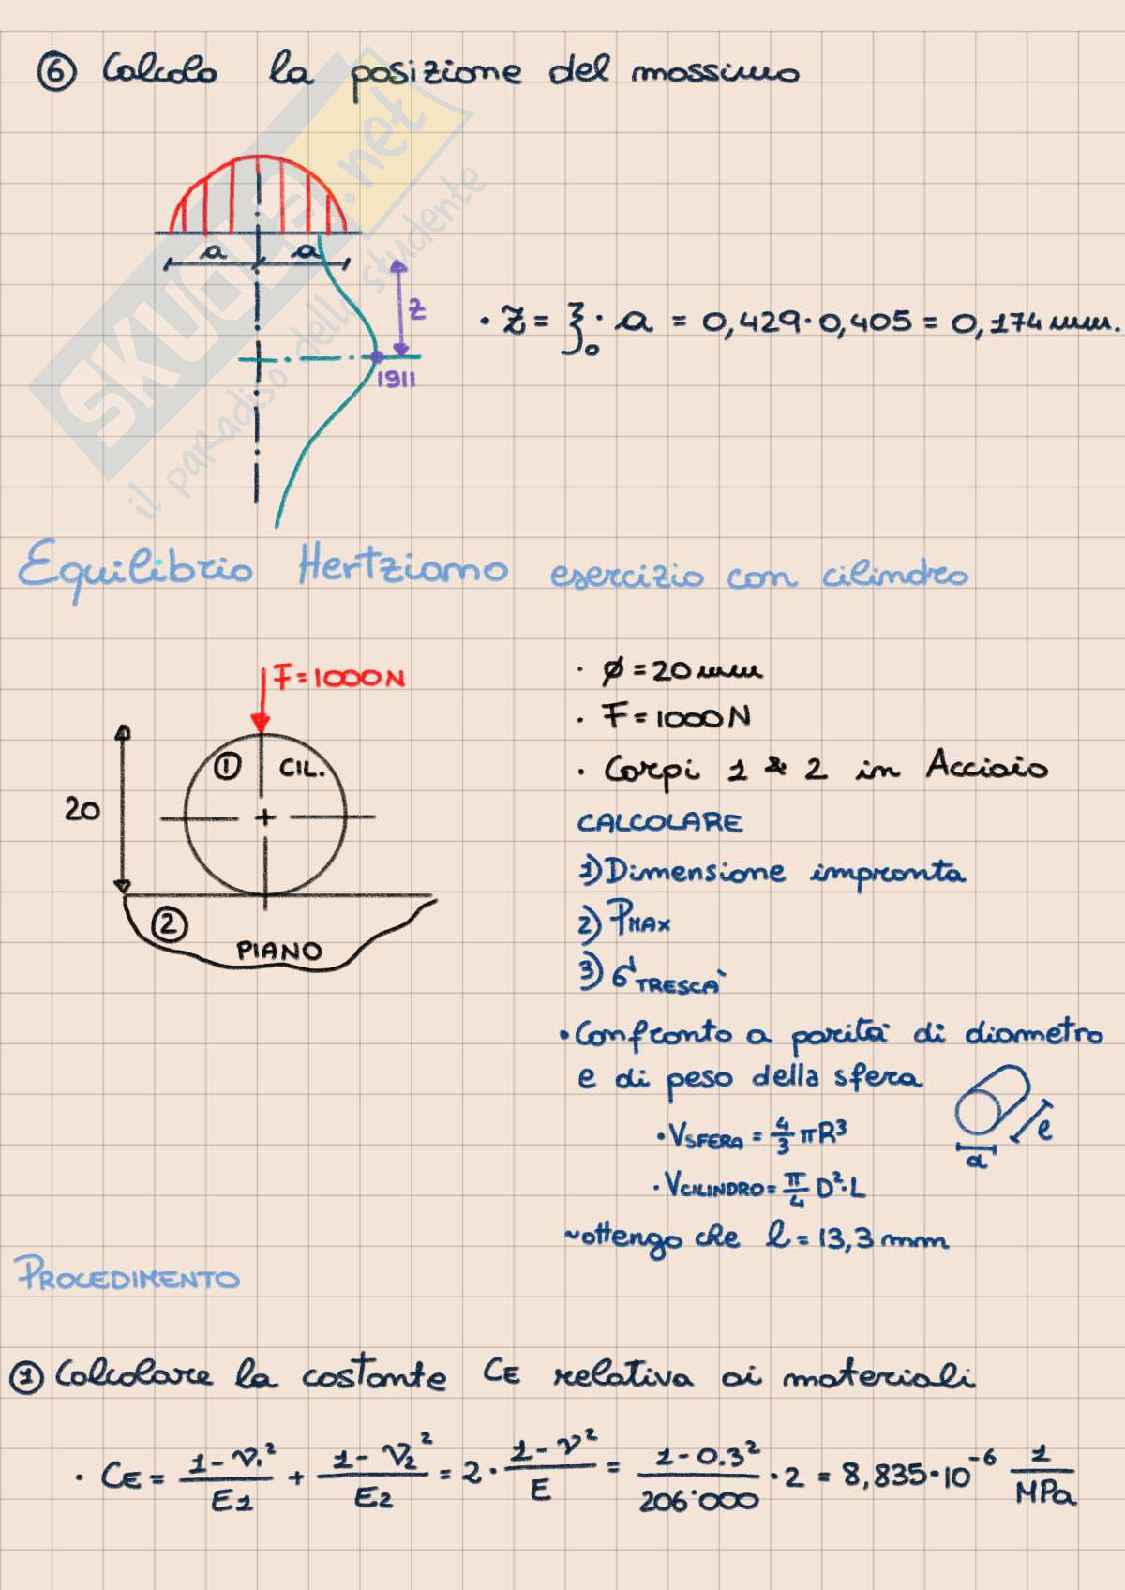 ⑥ Calcolo la posizione del massimo
SKUOLA.net
il paradiso dello studente
a a
z
1911
· z = ξ₀ · a = 0,429·0,405 = 0,174 mm.
Equilibrio Hertziano esercizio con cilindro
F=1000N
① CIL.
20
② PIANO
· ϕ = 20 mm
· F = 1000N
· Corpi 1 & 2 in Acciaio
CALCOLARE
1) Dimensione impronta
2) PMAX
3) σTRESCA'
• Confronto a parità di diametro
e di peso della sfera
• VSFERA = 4/3 πR³
· VCILINDRO = π/4 D²·L
d l
~ottengo che l = 13,3 mm
PROCEDIMENTO
① Calcolare la costante CE relativa ai materiali
· CE = (1-ν₁²)/E1 + (1-ν₂²)/E2 = 2 · (1-ν²)/E = (1-0.3²)/206·000 · 2 = 8,835·10⁻⁶ 1/MPa